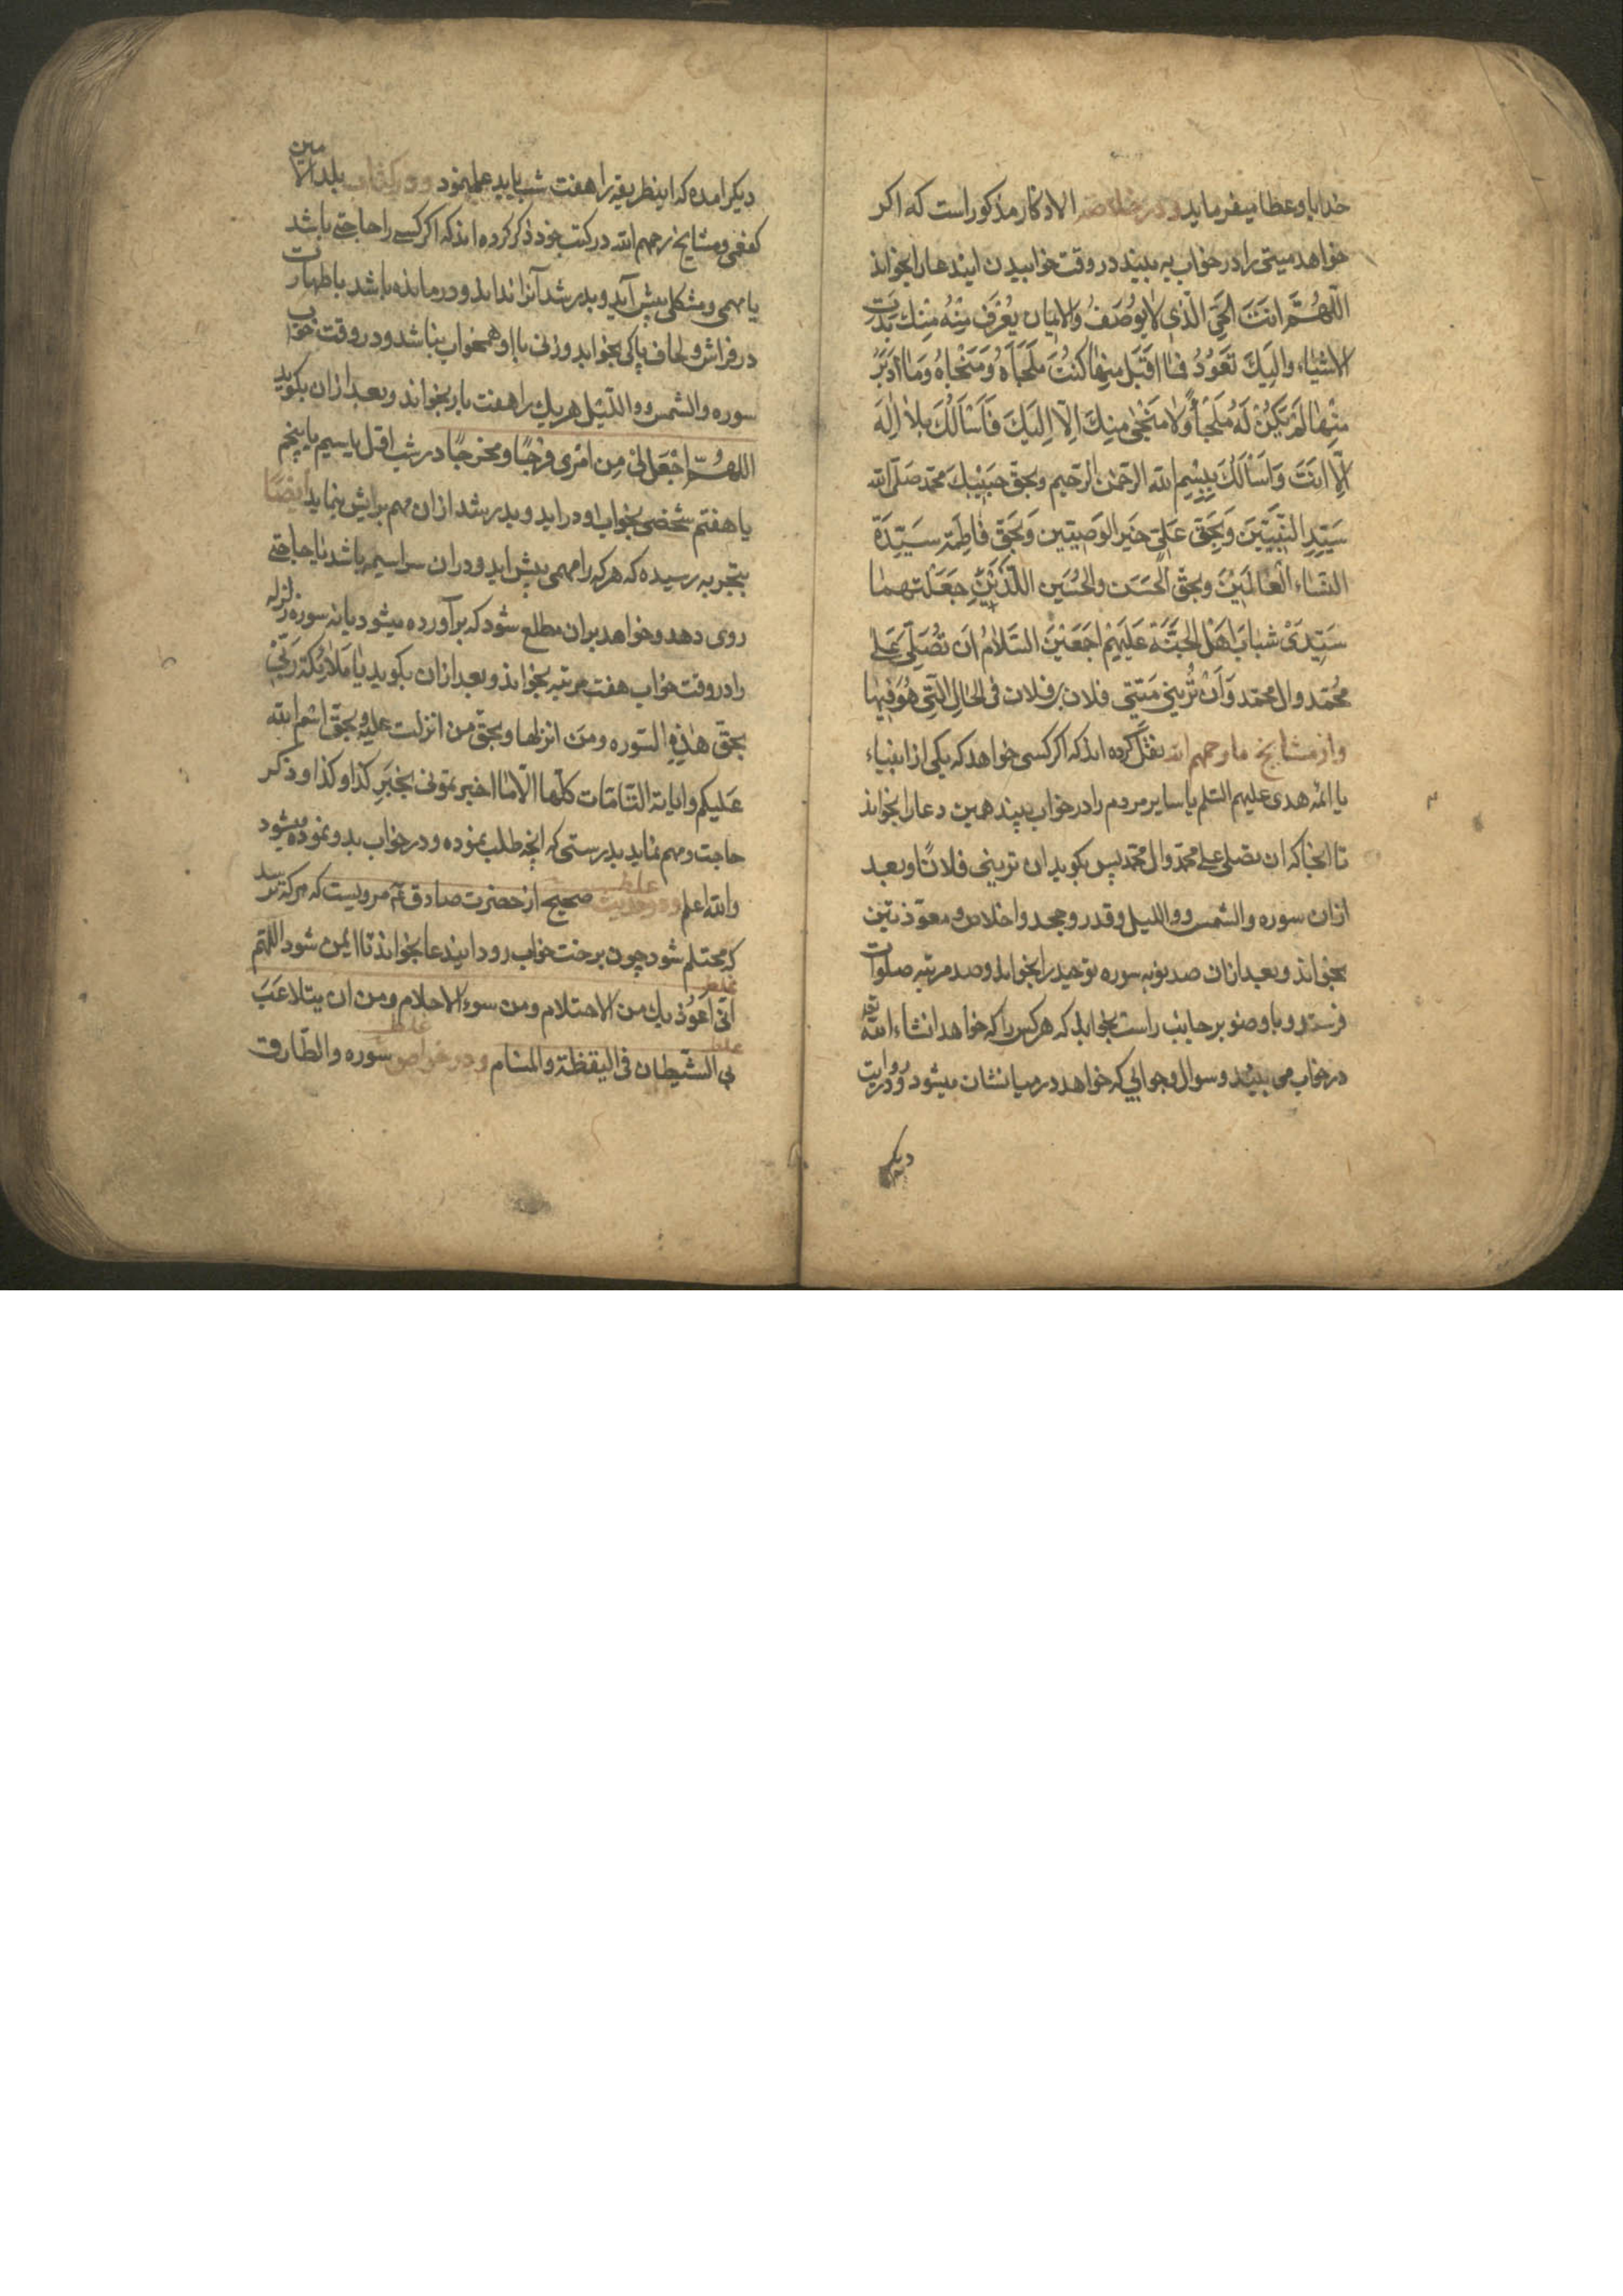 خدایا و عطا میفرماید و در خلاصه الاذکار مذکور است که اکر
خواهد میتی را در خواب به بیند در وقت خوابیدن ایندعا را بخواند
اَللّهُمَّ اَنتَ الحَیّ الَّذی لایُوصَفُ وَالایمان یُعْرَفُ مِنْهُ مِنْكَ بَدَتِ
الاشیاء وَاِلَیكَ تَعُودُ فَما اَقبَلَ مِنها کُنْتُ مَلجَأهُ وَمَنْجاهُ وَما اَدبَرَ
مِنْها لَمْ یَکُنْ لَهُ مَلجَأً وَلا مَنْجی مِنكَ اِلّا اِلَیكَ فَاَسْاَلُكَ بِلا اِلهَ
اِلّا اَنتَ وَاَسْأَلُكَ بِبِسْمِ الله الرحمن الرحیم وبحق حَبیبِكَ محمد صلی الله
سَیّدِ النَّبِیّینَ وَبِحَقِّ عَلیّ خَیر الوَصِیّین وَبِحَقِّ فاطِمَة سَیّدَة
النساء العالَمینَ وبحق الحَسَن والحُسَین اللّذَینِ جَعَلْتَهما
سَیّدَی شبابِ اَهْل الجَنَّة عَلَیهِمْ اَجمَعینَ السَّلامُ اَن تُصَلّیَ عَلی
مُحَمّد وال محمّد وَاَنْ تُرِیَنی مَیّتی فلان بن فلان فی الحال الَّتی هُوَ فیها
و از مشایخ ما رحمهم الله نقل کرده اند که اکر کسی خواهد که یکی از انبیاء
یا ائمه هدی علیهم السلم یا سایر مردم را در خواب بیند همین دعا را بخواند
تا انجا که ان تصلی علی محمد وال محمد پس بکوید ان ترینی فلانًا و بعد
ازان سوره والشمس و واللیل و قدر و جحد و اخلاص و معوذتین
بخواند و بعد ازان صد نوبه سوره توحید را بخواند و صد مرتبه صلوات
فرستد و با وضو بر جانب راست بخوابد که هر کس را که خواهد انشاء الله تع
در خواب می بیند و سوال و جوابی که خواهد در میانشان میشود و در روایت
دیکر
دیکر امده که اینطریقه را هفت شب باید عمل نمود و در کتاب بلد الامین
کفعمی و مشایخ رحمهم الله در کتب خود ذکر کرده اند که اکر کسی را حاجتی باشد
یا مهمی و مشکلی پیش آید و بدر شد آنرا نداند و درمانده باشد با طهارت
در فراش و لحاف پاکی بخوابد و زنی با او همخواب نباشد و در وقت خواب
سوره والشمس و واللّیل هر یك را هفت بار بخواند و بعد ازان بکوید
اللهُمّ اجْعَل لی مِن اَمْری فَرَجًا وَمخرجًا در شب اول یا سیم یا پنجم
یا هفتم شخصی بخواب او در اید و بدر شد ازان مهم برایش بنماید ایضًا
بتجربه رسیده که هر که را مهمی پیش اید و دران سراسیمه باشد یا حاجتی
روی دهد و خواهد بران مطلع شود که برآورده میشود یا نه سوره زلزله
را در وقت خواب هفت مرتبه بخواند و بعد ازان بکوید یا مَلائِکَة رَبّی
بِحَقّ هذِهِ السّوره ومَن انزلها و بحَقّ من انزلت علیه و بحَقّ اسم الله
عَلیکم وایاته التّامّات کلّها الّا ما اخبرتمونی بخَبَرِ کذا وکذا و ذکر
حاجت و مهم نماید بدرستی که انچه طلب نموده و در خواب بدو نموده میشود
والله اعلم و در حدیث صحیح از حضرت صادق ع مرویست که هر که ترسد
که محتلم شود چون بر خت خواب رود ایندعا بخواند تا ایمن شود اللّهم
انّی اَعُوذ بك من الاحتلام ومن سوء الاحلام ومن ان یتلاعَبَ
بی الشّیطان فی الیقظة والمنام و در خواص سوره والطّارق